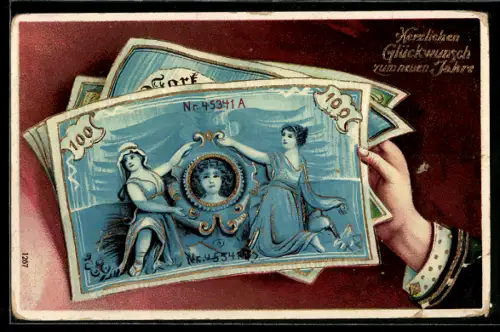 Herzlichen
Glückwunsch
zum neuen Jahre
Mark
Nr. 45341 A
100
100
1207